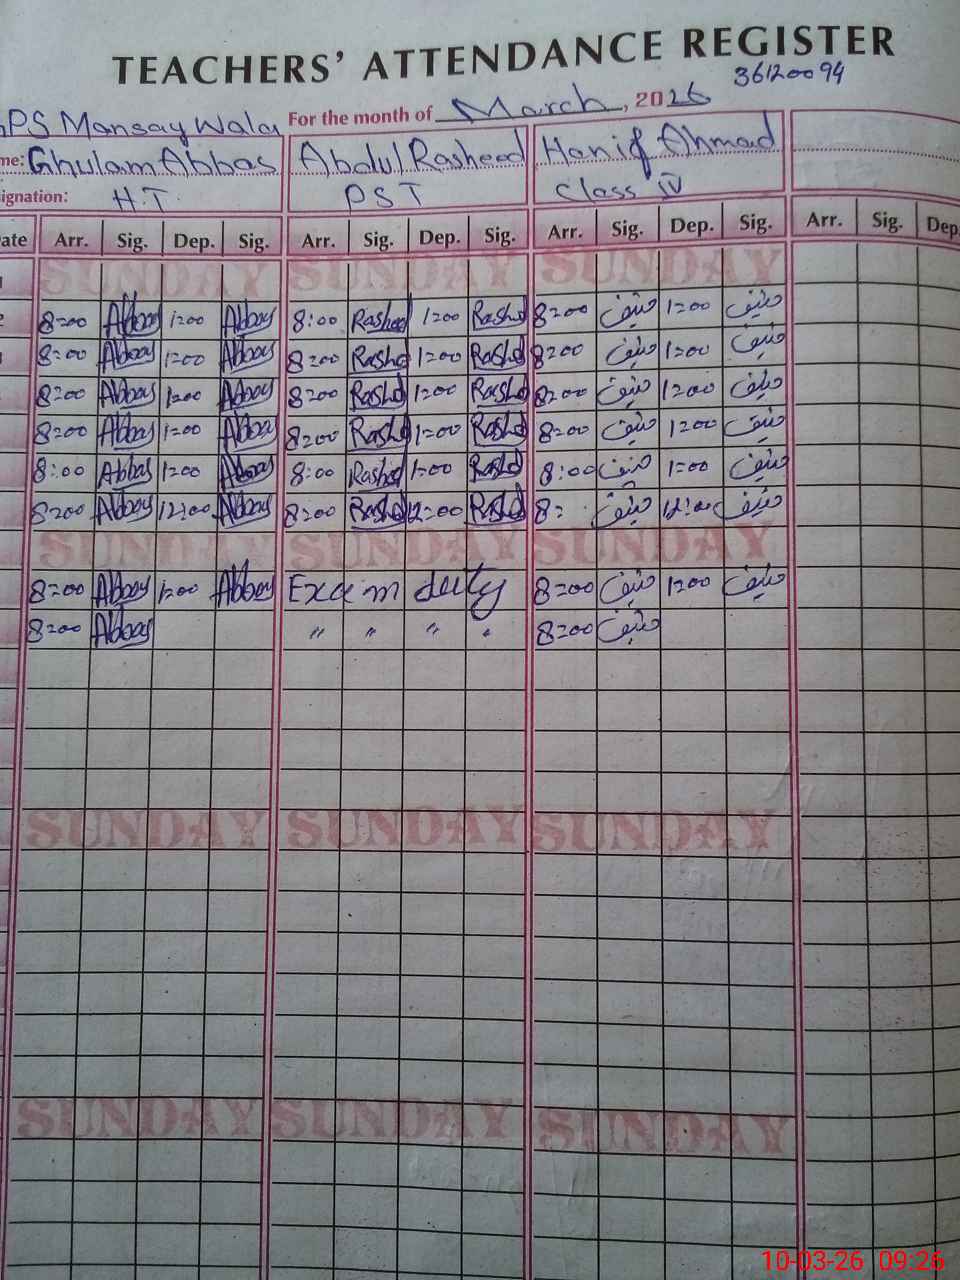 TEACHERS' ATTENDANCE REGISTER
36120094
PS Mansay Wala For the month of March, 2026
me: Ghulam Abbas Abdul Rasheed Hanif Ahmad
signation: H.T. PST Class IV
ate Arr. Sig. Dep. Sig. Arr. Sig. Dep. Sig. Arr. Sig. Dep. Sig. Arr. Sig. Dep.
SUNDAY SUNDAY SUNDAY
2 8=00 Abbas 1=00 Abbas 8:00 Rasheed 1=00 Rashd 8=00 حنیف 1=00 حنیف
8=00 Abbas 1=00 Abbas 8=00 Rashd 1=00 Rashd 8=00 حنیف 1=00 حنیف
8=00 Abbas 1=00 Abbas 8=00 Rashd 1=00 Rashd 8=00 حنیف 1=00 حنیف
8=00 Abbas 1=00 Abbas 8=00 Rashd 1=00 Rashd 8=00 حنیف 1=00 حنیف
8:00 Abbas 1=00 Abbas 8:00 Rashed 1=00 Rashd 8:00 حنیف 1=00 حنیف
8=00 Abbas 12=00 Abbas 8=00 Rashd 12=00 Rashd 8= حنیف 12:00 حنیف
SUNDAY SUNDAY SUNDAY
8=00 Abbas 1=00 Abbas Exam duty 8=00 حنیف 1=00 حنیف
8=00 Abbas " " " " 8=00 حنیف
SUNDAY SUNDAY SUNDAY
SUNDAY SUNDAY SUNDAY
10-03-26 09:26